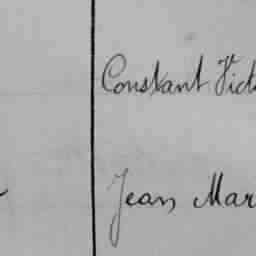 Constant Vict
Jean Mar